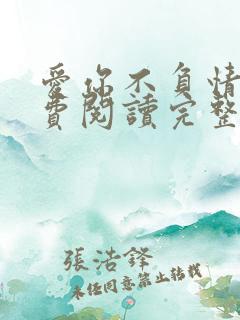 愛你不負情
費閱讀完整
張浩鋒
未經同意禁止轉載